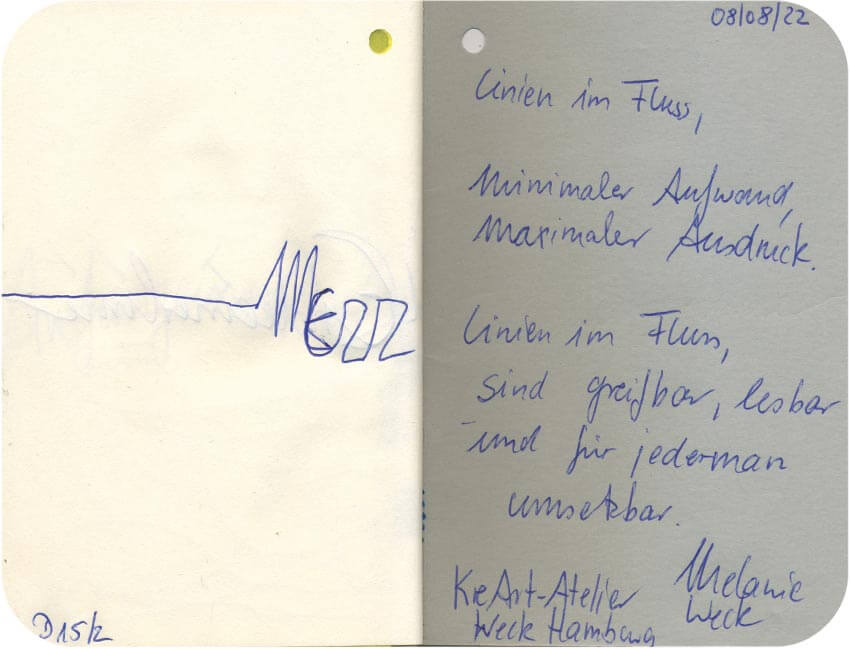 MERZ
D15/2
08/08/22
Linien im Fluss,
Minimaler Aufwand,
Maximaler Ausdruck.
Linien im Fluss,
sind greifbar, lesbar
und für jederman
umsetzbar.
KreArt-Atelier
Weck Hamburg
Melanie
Weck